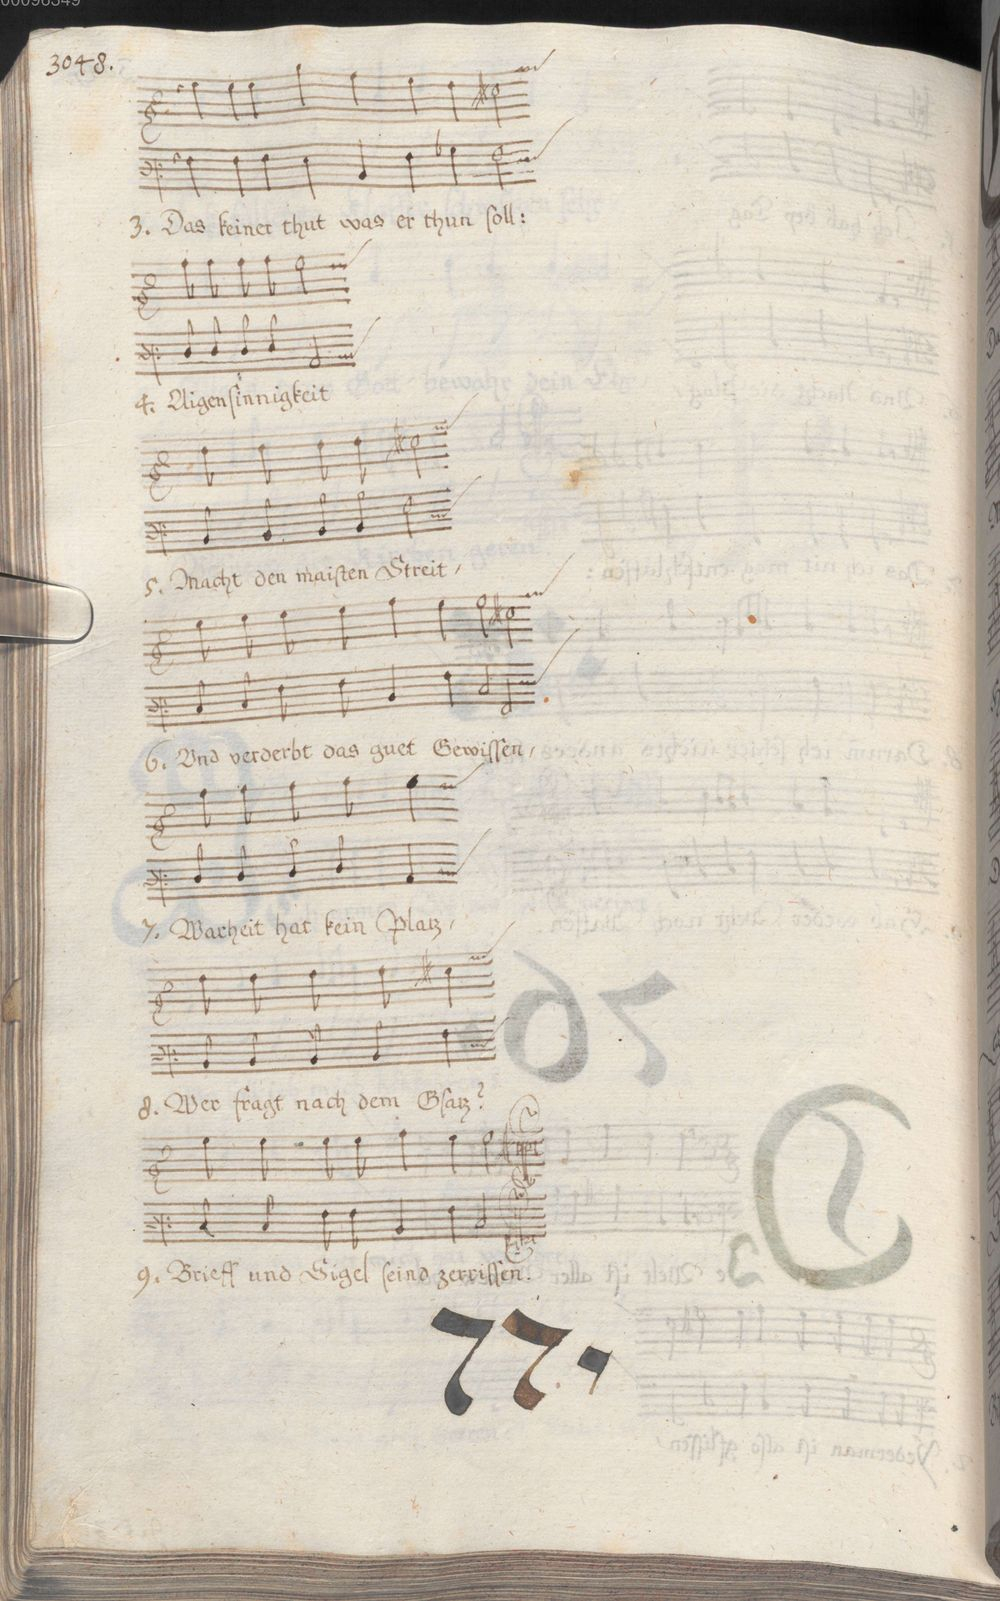 00096349
3048.
3. Das keiner thut was er thun soll:
4. Aigensinnigkeit
5. Macht den maisten Streit,
6. Vnd verderbt das guet Gewissen,
7. Warheit hat kein Platz,
8. Wer fragt nach dem Gsatz?
9. Brieff und Sigel seind zerrissen.
77.